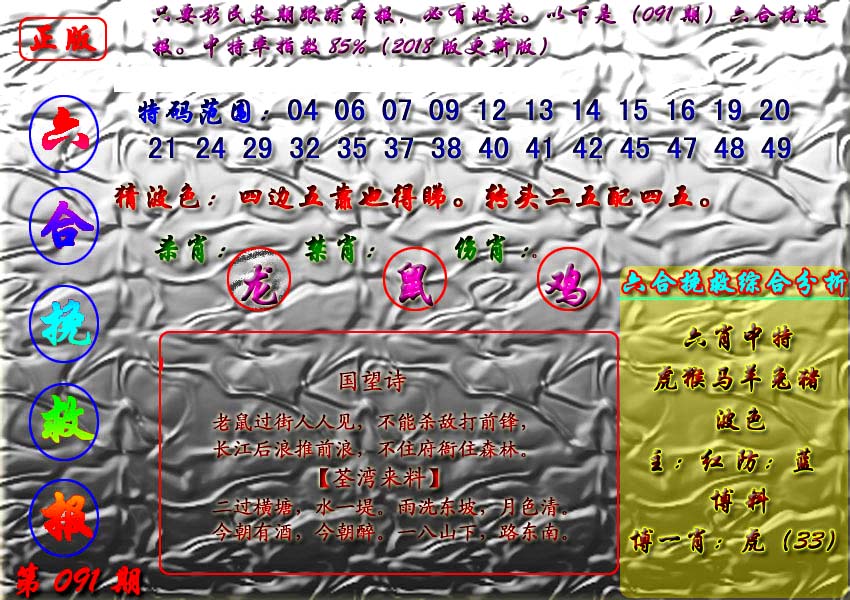 正版
只要彩民长期跟踪本报，必有收获。以下是（091期）六合挽救
报。中特率指数85%（2018版更新版）
六
合
挽
救
报
第091期
特码范围：04 06 07 09 12 13 14 15 16 19 20
21 24 29 32 35 37 38 40 41 42 45 47 48 49
猜波色：四边五靠也得睇。转头二五配四五。
杀肖：龙 禁肖：鼠 伤肖：鸡
国望诗
老鼠过街人人见，不能杀敌打前锋，
长江后浪推前浪，不住府衙住森林。
【荃湾来料】
二过横塘，水一堤。雨洗东坡，月色清。
今朝有酒，今朝醉。一八山下，路东南。
六合挽救综合分析
六肖中特
虎猴马羊兔猪
波色
主：红防：蓝
博料
博一肖：虎（33）